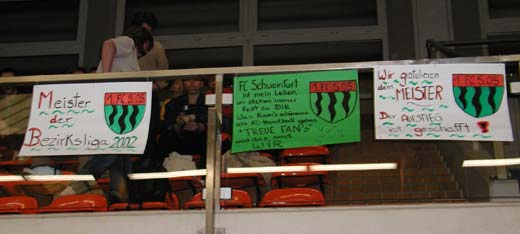 Meister
1. FC S.05
der
Bezirksliga 2002
FC Schweinfurt
1. FC S.05
ist mein Leben
wir stehen immer
fest zu DIR
Was kann's schöneres
als FC-Handball
geben
"TREUE FAN'S"
und das sind
WIR
Wir gratulieren
1. FC S.05
dem
MEISTER
Der AUFSTIEG
ist geschafft